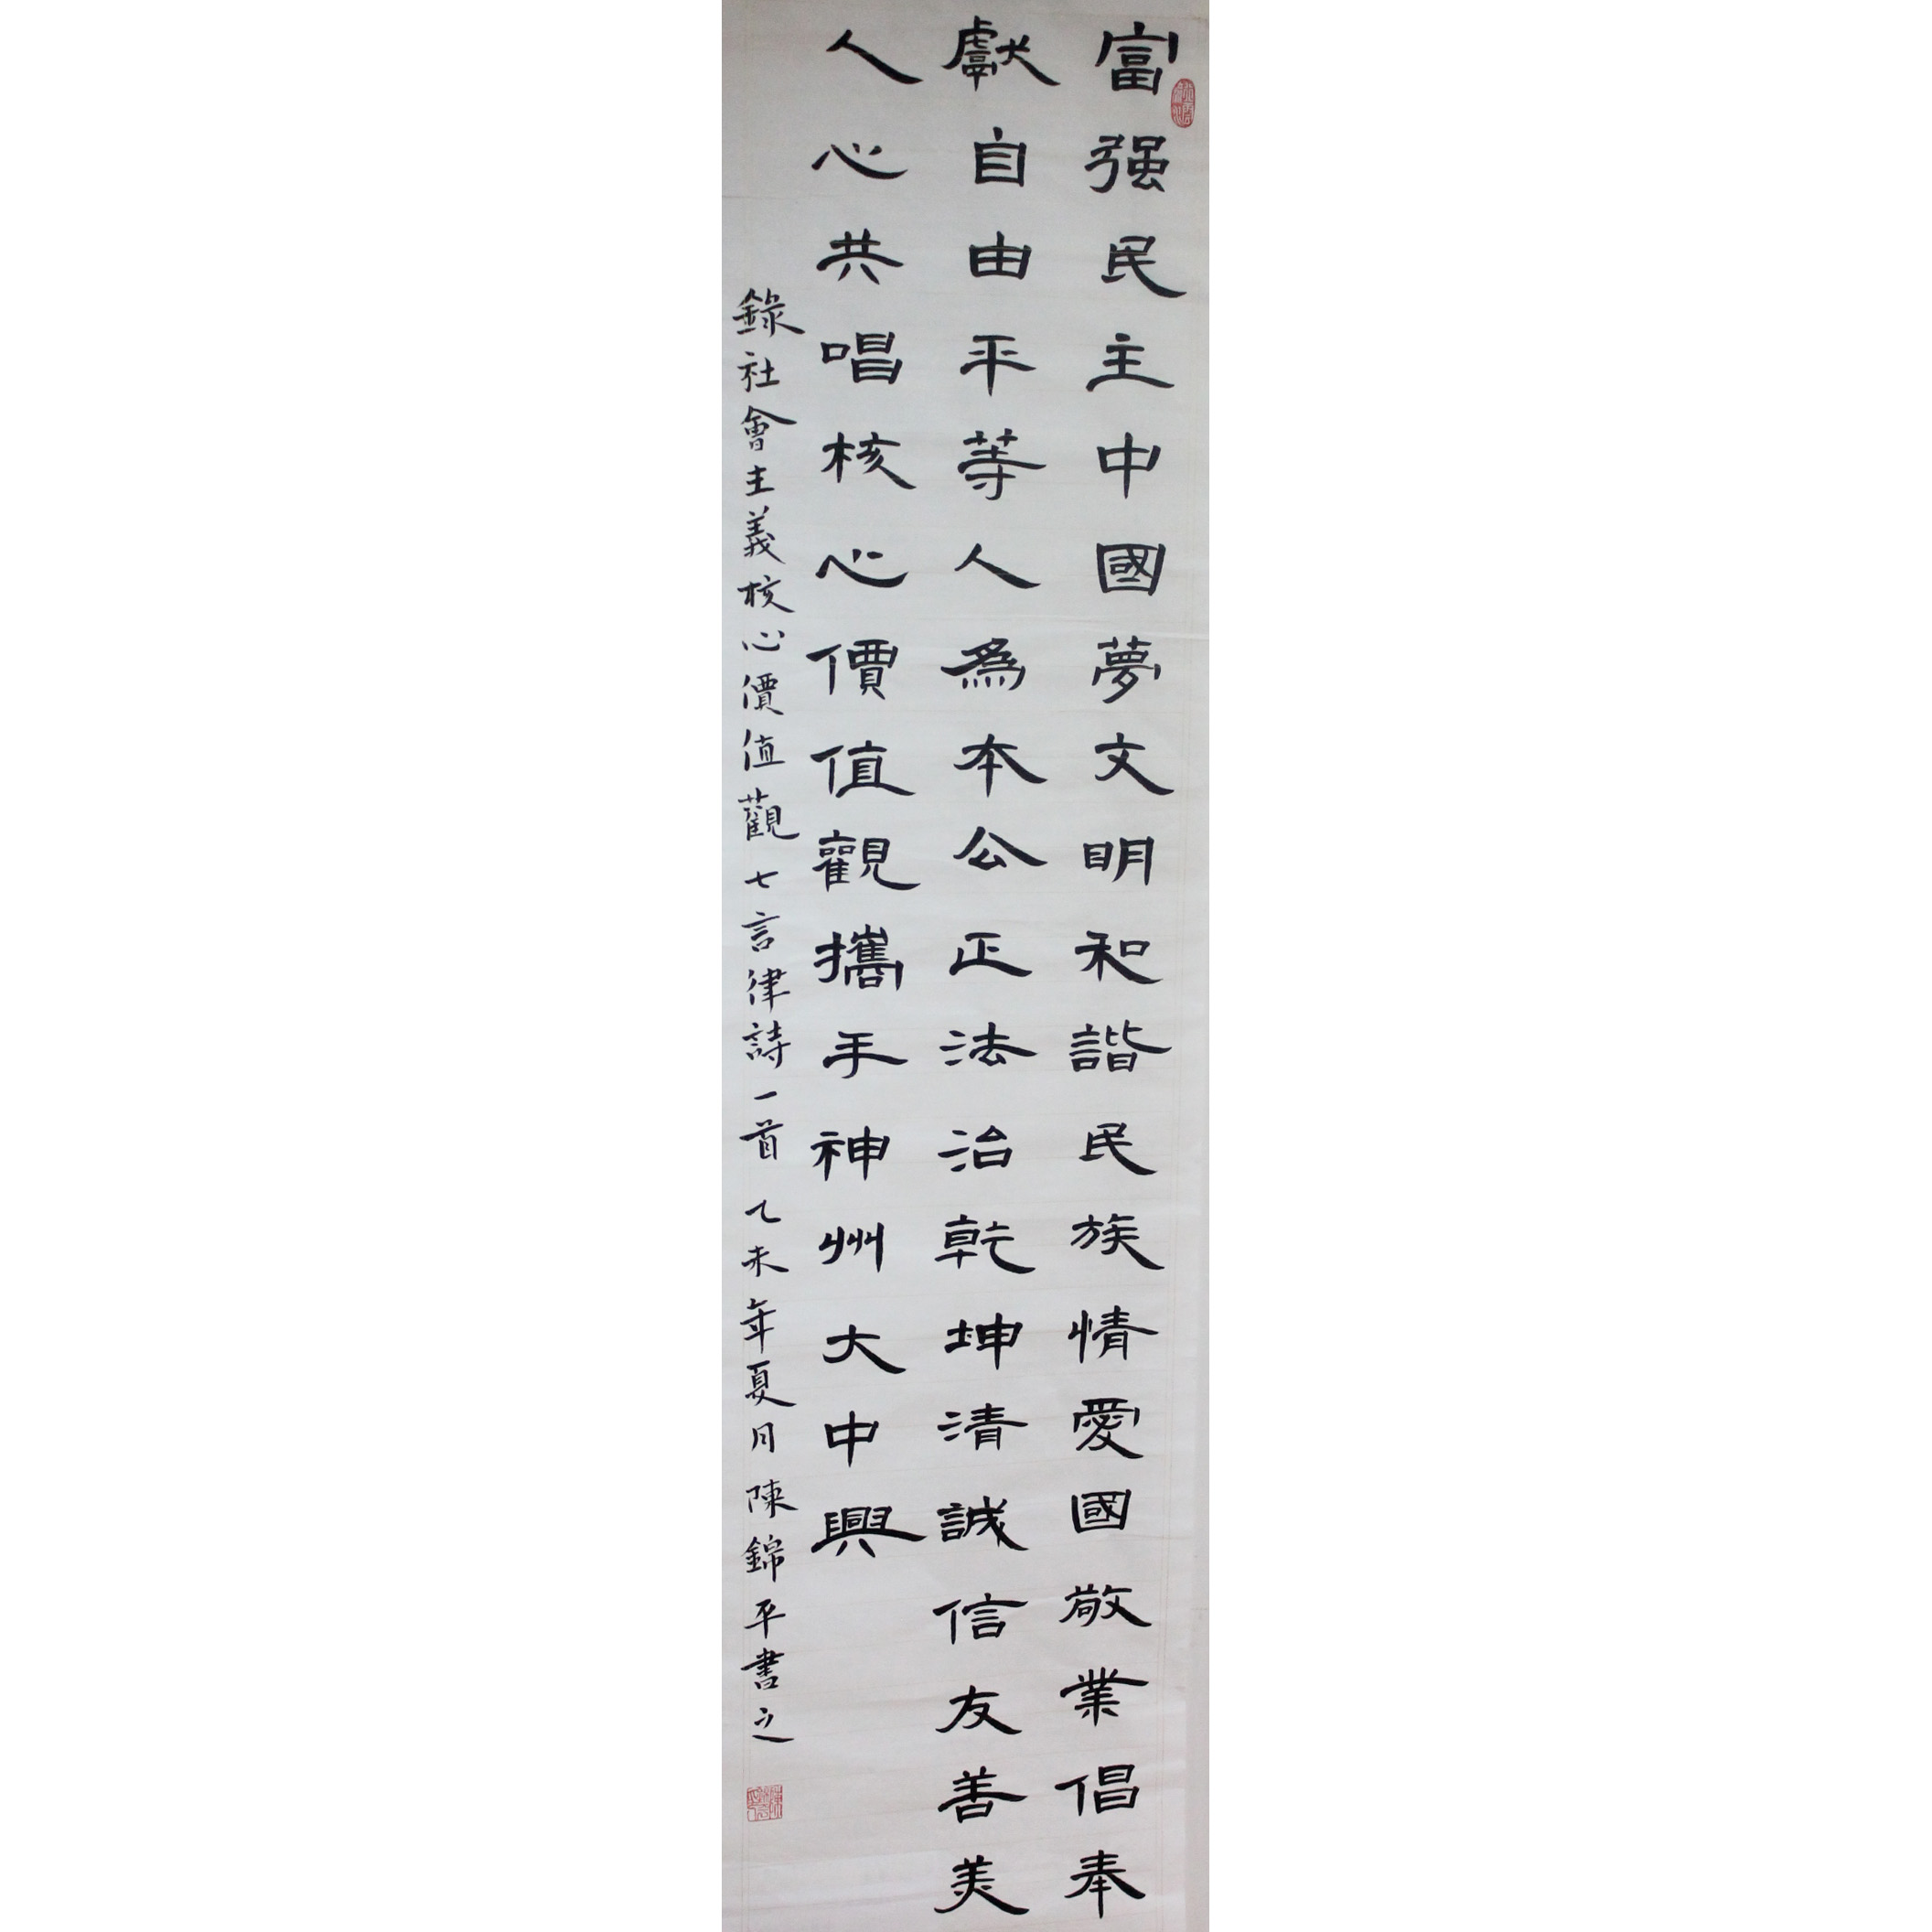 富强民主中國夢文明和諧民族情愛國敬業倡奉
獻自由平等人為本公正法治乾坤清誠信友善美
人心共唱核心價值觀攜手神州大中興
錄社會主義核心價值觀七言律詩一首乙未年夏月陳錦平書之